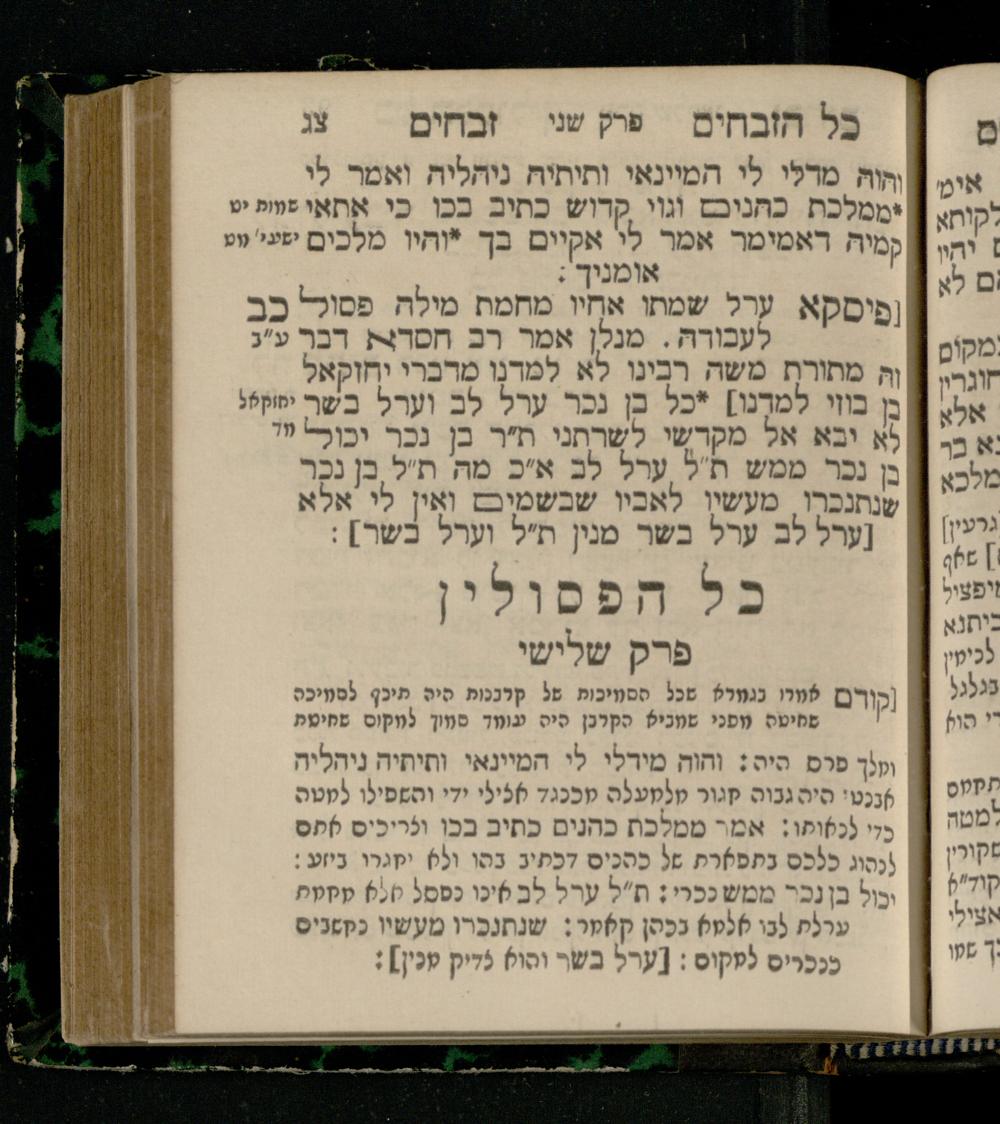 כל הזבחים פרק שני זבחים צג
והוה מדלי לי המיינאי ותיתיה ניהליה ואמר לי
*ממלכת כהנים וגוי קדוש כתיב בכו כי אתאי שמות יט
קמיה דאמימר אמר לי אקיים בך *והיו מלכים ישעי' מט
אומניך :
[פיסקא ערל שמתו אחיו מחמת מילה פסול כב
לעבודה. מנלן אמר רב חסדא דבר ע"ב
זה מתורת משה רבינו לא למדנו מדברי יחזקאל
בן בוזי למדנו] *כל בן נכר ערל לב וערל בשר יחזקאל
לא יבא אל מקדשי לשרתני ת"ר בן נכר יכול מד
בן נכר ממש ת"ל ערל לב א"כ מה ת"ל בן נכר
שנתנכרו מעשיו לאביו שבשמים ואין לי אלא
[ערל לב ערל בשר מנין ת"ל וערל בשר] :
כל הפסולין
פרק שלישי
[קודם אמרו בגמרא שכל הסמיכות של קרבנות היה תיכף לסמיכה
שחיטה מפני שמביא הקרבן היה עומד סמוך למקום שחיטת
ומלך פרס היה : והוה מידלי לי המיינאי ותיתיה ניהליה
אבנטי היה גבוה קגור מלמעלה מכנגד אצילי ידי והשפילו למטה
כדי לנאותו : אמר ממלכת כהנים כתיב בכו וצריכים אתם
לנהוג כלכם בתפארת של כהנים דכתיב בהו ולא יחגרו ביזע :
יכול בן נכר ממש נכרי : ת"ל ערל לב אינו נפסל אלא מחמת
ערלת לבו אלמא בכהן קאמר : שנתנכרו מעשיו נחשבים
כנכרים למקום : [ערל בשר והוא צדיק מנין] :
אימ'
לקותא
יהיו
הם לא
במקום
חוגרין
אלא
בר
מלכא
גרעין]
[ שאף
ביתנא
לכימין
בגלגל
הוא
למטה
אצילי
שמו